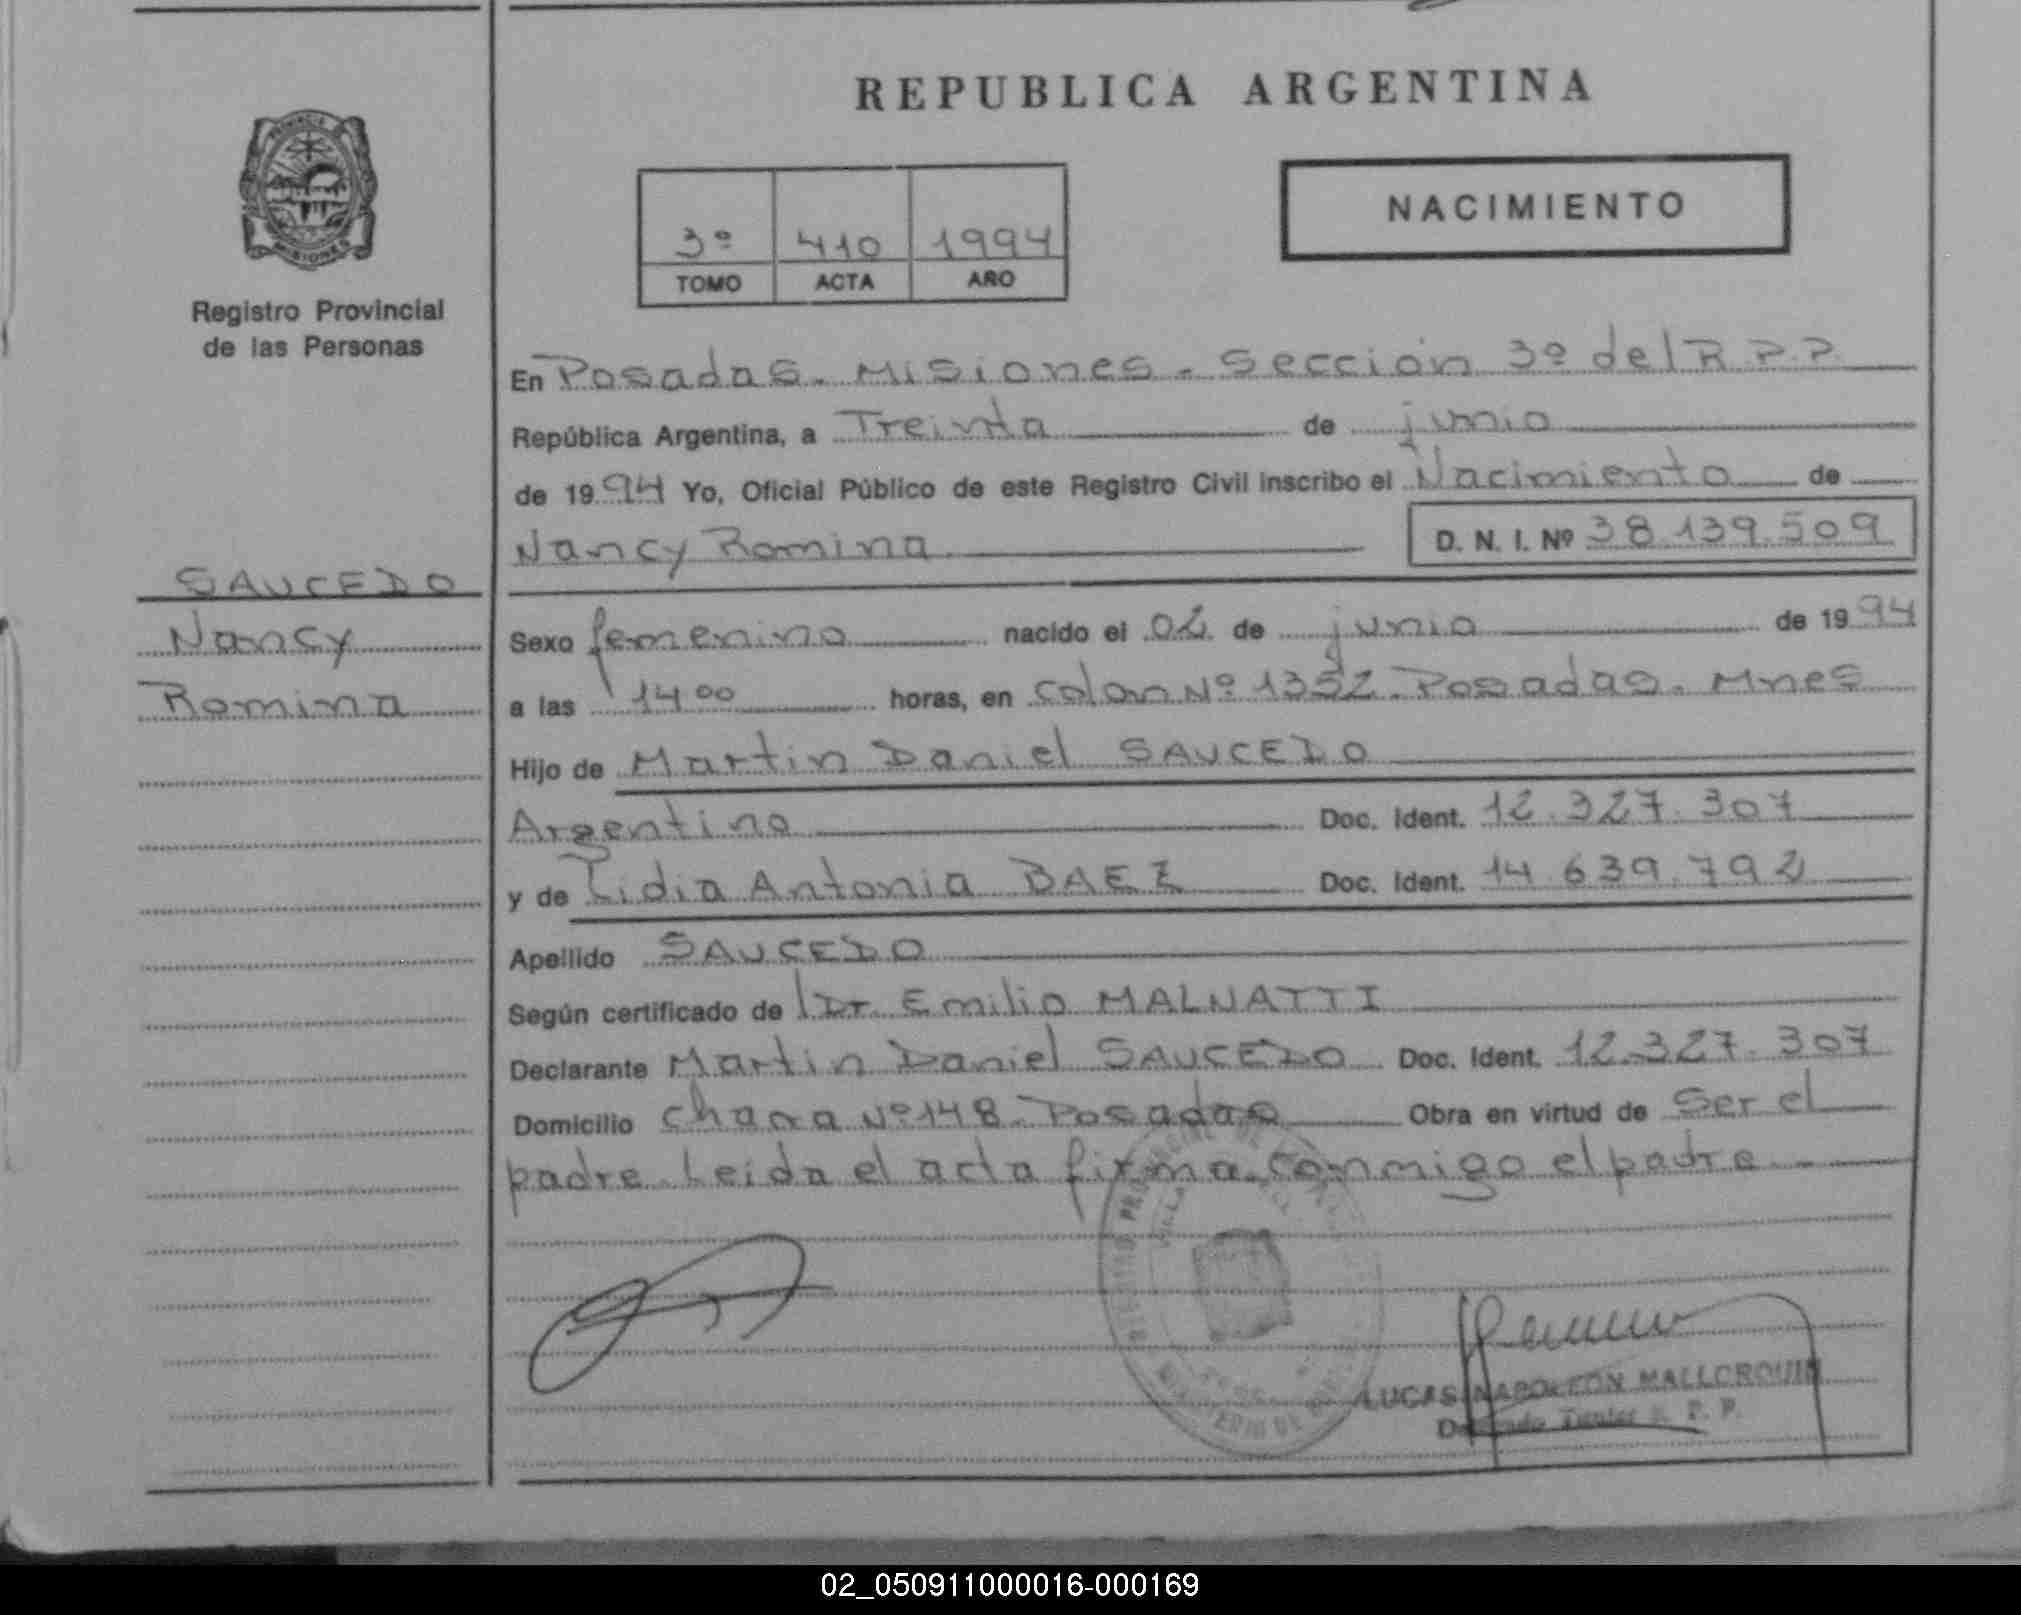 REPUBLICA ARGENTINA
NACIMIENTO
3º 410 1994
TOMO ACTA AÑO
Registro Provincial
de las Personas
En Posadas. Misiones. Sección 3º del R.P.P.
República Argentina, a Treinta de junio
de 1994 Yo, Oficial Público de este Registro Civil inscribo el Nacimiento de
Nancy Romina D. N. I. Nº 38.139.509
SAUCEDO
Nancy
Romina
Sexo femenino nacido el 02 de junio de 1994
a las 14 00 horas, en Colon Nº 1352. Posadas. Mnes
Hijo de Martin Daniel SAUCEDO
Argentino Doc. Ident. 12.327.307
y de Lidia Antonia BAEZ Doc. Ident. 14.639.792
Apellido SAUCEDO
Según certificado de Dr. Emilio MALNATTI
Declarante Martin Daniel SAUCEDO Doc. Ident. 12.327.307
Domicilio Chacra Nº 148. Posadas Obra en virtud de Ser el
padre. Leida el acta firma conmigo el padre
LUCAS NAPOLEON MALLORQUIN
02_050911000016-000169